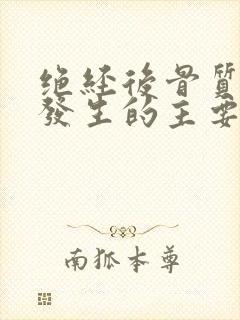 绝經後骨質
發生的主要
南狐本尊